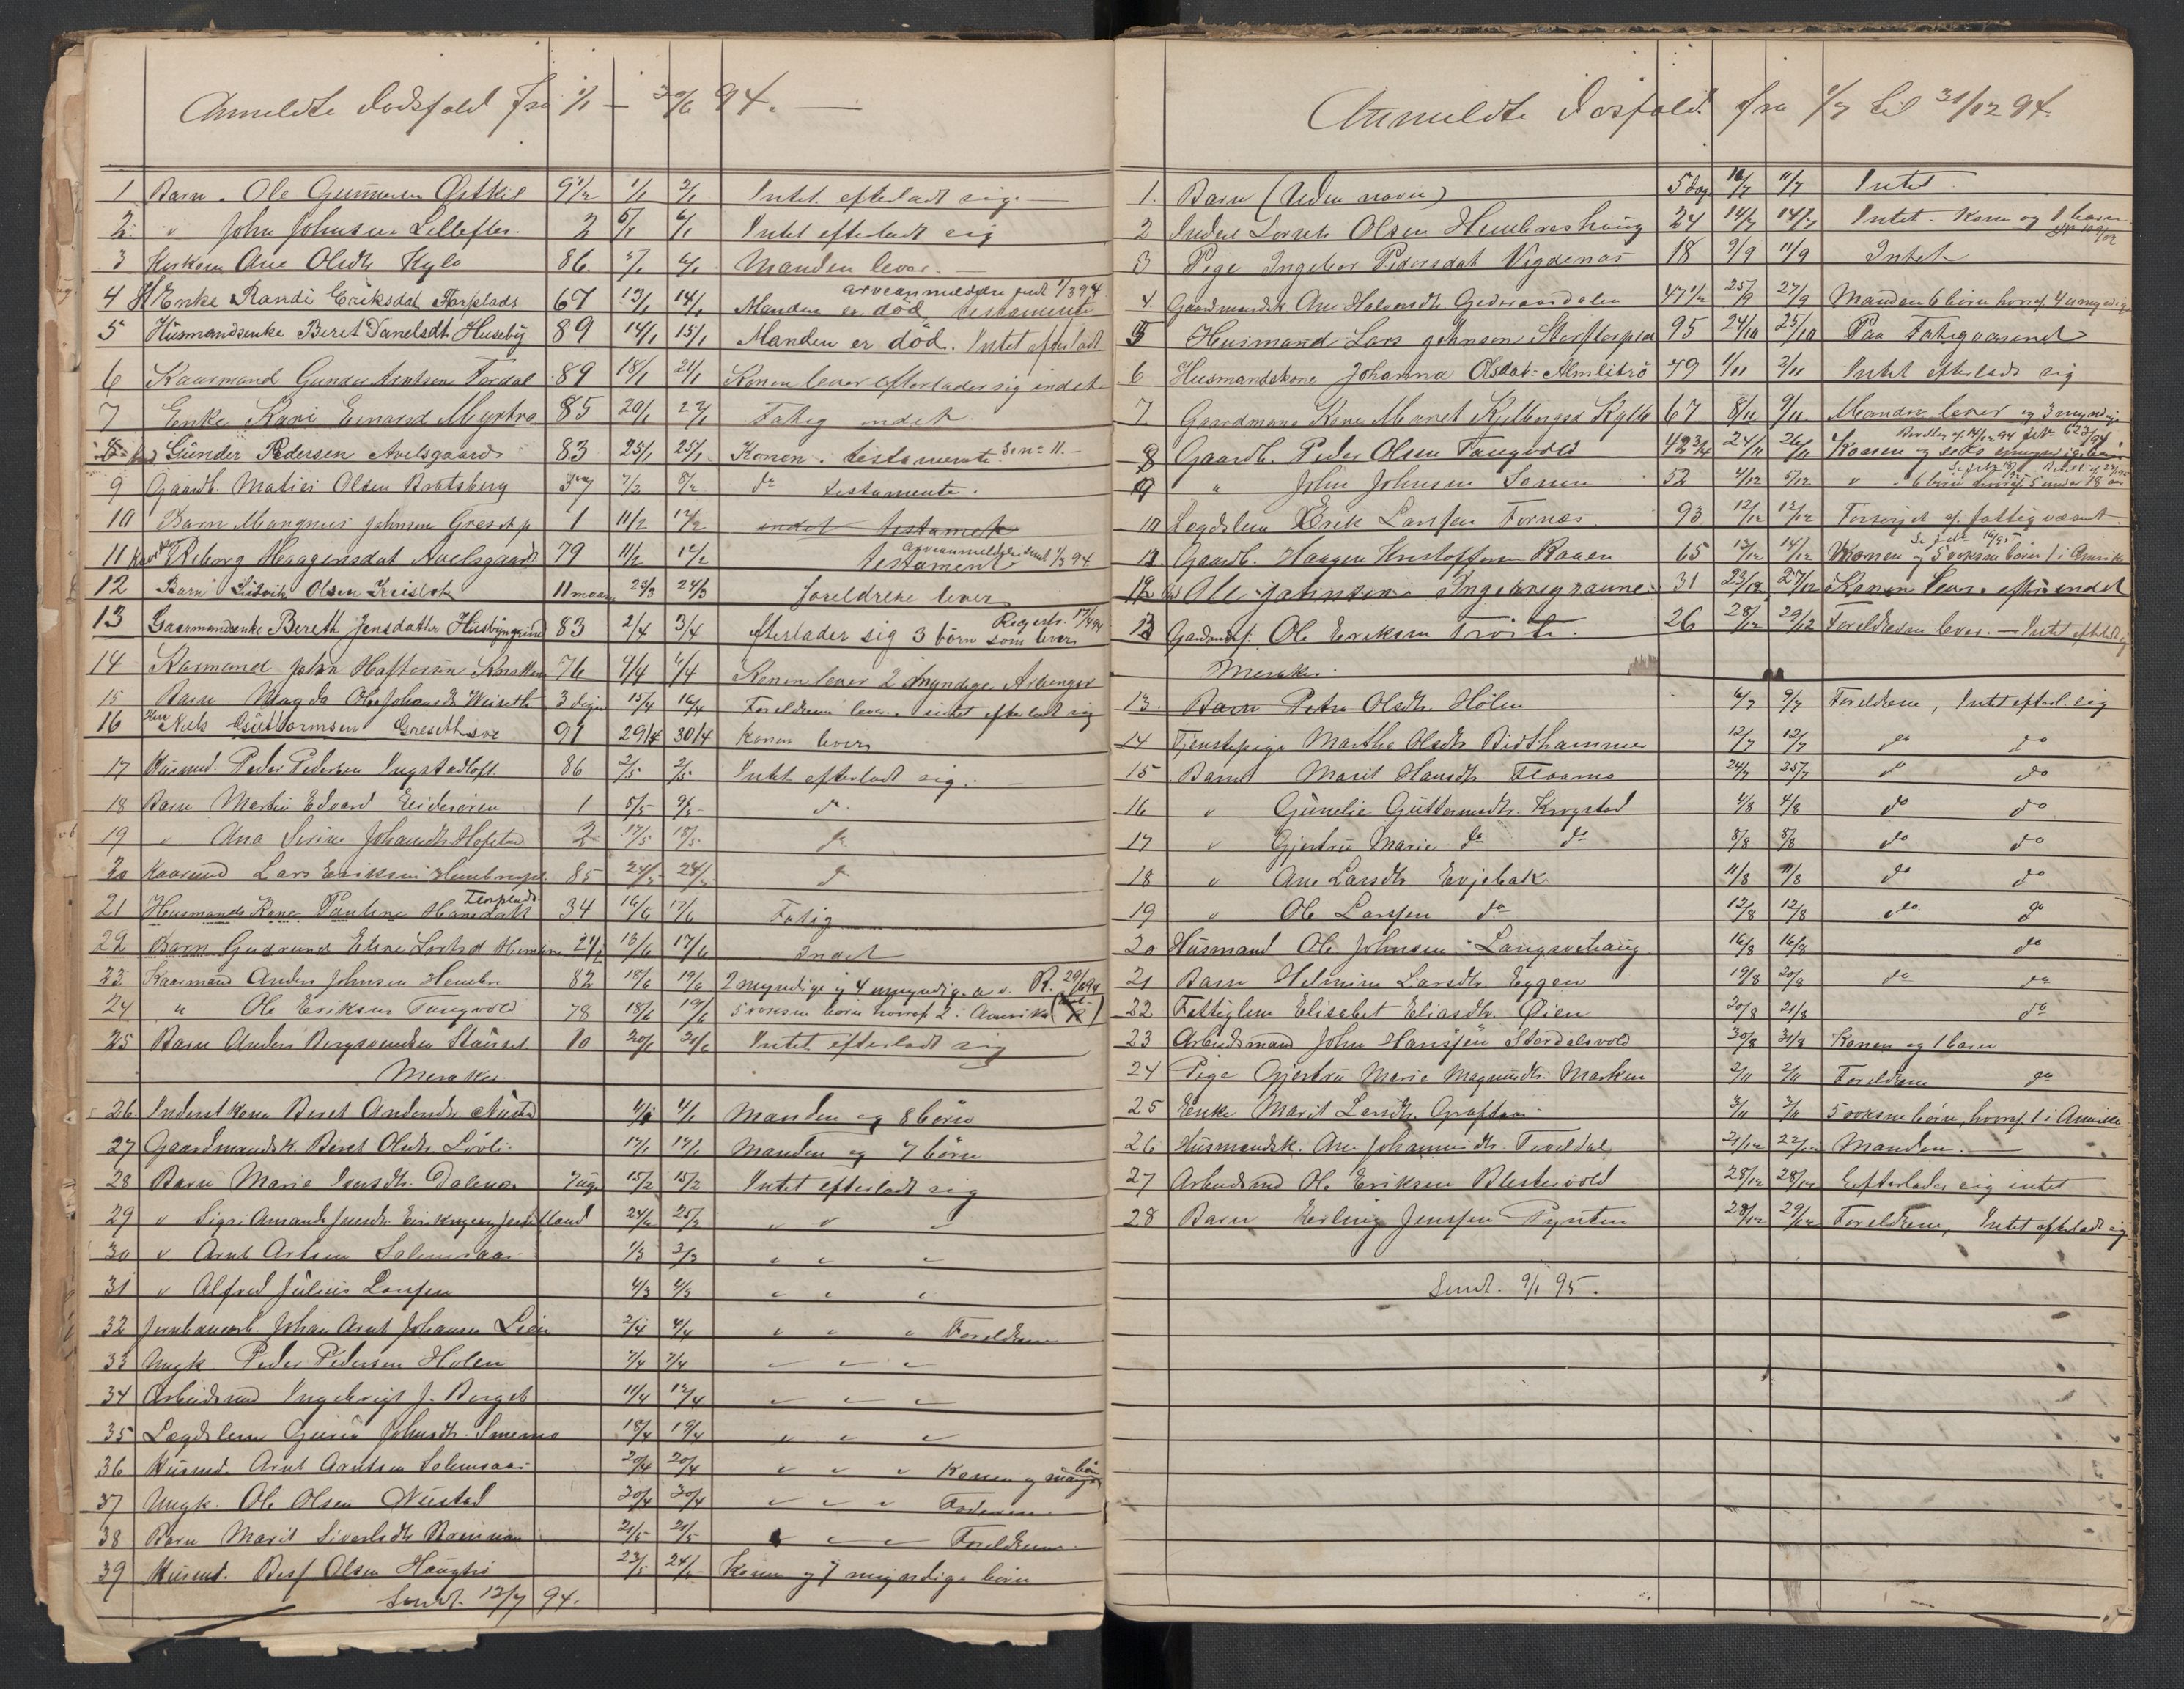 Anmeldte dødsfald fra 1/1 – 30/6 94. —
1 Barn. Ole Gunnersen Østkil 9 1/2 1/1 2/1 Intet efterladt sig. —
2. " John Johnsen Lillefler. 2 5/1 6/1 Intet efterladt sig
3 Kaarkone Ane Olsdtr Kylo 86. 5/1 6/1 Manden lever. —
4 Enke Randi Eriksdat Forplads 67 13/1 14/1 Manden er død, testamente arveanmeldelse sendt 1/3 94
5 Husmandsenke Beret Danelsdt. Huseby 89 14/1 15/1 Manden er död. Intet efterladt
6 Kaarmand Gunder Arntsen Fordal 89 18/1 21/1 Konen lever efterlader sig indet
7 Enke Kari Einarsd Myrtro 85 20/1 22/1 Fatig indet
8 Gunder Pedersen Avelsgaard 83 25/1 25/1 Konen. testamente. Se no 11. —
9 Gaardb. Matias Olsen Bratsberg 37 7/2 8/2 do testamente.
10 Barn Mangnus Johnsen Gresetp 1 11/2 12/2 indet testamete
11 Reborg Haagensdat Avelsgaard 79 11/2 12/2 testament arveanmeldelse sendt 1/3 94
12 Barn Ludvik Olsen 11 maan 23/3 24/3 foreldrene lever
13 Gaarmandsenke Bereth Jensdatter Husbyngrind 83 2/4 3/4 efterlader sig 3 börn som lever Registr. 17/4 94
14 Kaarmand Johan Haftorsen 76 4/4 6/4 Konen lever 2 Myndige Arvinger
15 Barn Magda Olea Johansdtr Weiseth 3 dage 15/4 16/4 Foreldrene lever. intet efterladt sig
16 Niels Guttormsen Gresethsve 91 29/4 30/4 konen lever
17 Husmd. Peder Pedersen Ingstadloft. 86 2/5 2/5 Intet efterladt sig. —
18 Barn Martin Edvard Eidsören 1 5/5 9/5 do
19 " Ana Serine Johansdtr Hofstad 2 17/5 18/5 do
20 Kaarmd Lars Eriksen Hembrepl. 85 24/5 24/5 do
21 Husmands Kone Pauline Hansdatt Ienplads 34 16/6 17/6 Fatig
22 Barn Gudrund Eline Lortsd Hembre 2 1/2 13/6 17/6 Indet
23 Kaarmand Anders Johnsen Hembre 82 18/6 19/6 2 myndige og 4 umyndige a. v. R. 29/6 94
24 " Ole Eriksen Tangvold 78 18/6 19/6 5 voksne börn hvoraf 2 i Amerika
25 Barn Anders Bergsvendsen Stauset 10 20/6 21/6 Intet efterladt sig
Meraker
26 Inderst kone Beret Andersdtr Nustad 4/1 4/1 Manden og 8 börn
27 Gaardmandsk. Beret Olsdtr. Lövli. 17/1 17/1 Manden og 7 börn
28 Barn Marie Iversdtr. Dalenes 7 uge 15/2 15/2 Intet efterladt sig
29 " Sigri Amanda Jensdtr. 24/2 25/2 " " "
30 " Arnt Artsen Salemsaas 1/3 3/3 " " "
31 " Alfred Julius Larssen 4/3 4/3 " " "
32 Jernbanearb. Johan Arnt Johansen Lien 2/4 4/4 " " " Foreldrene
33 Ungk. Peder Pedersen Holen 7/4 7/4 " " "
34 Arbeidsmd Ingebrigt J. Berget 11/4 12/4 " " "
35 Lægdslem Guria Johnsdtr. Smemo 18/4 19/4 " " "
36 Husmd. Arnt Arntsen Salemsaas 20/4 20/4 " " " Konen og mange bön
37 Ungk. Ole Olsen Nustad 30/4 30/4 " " " Faderen
38 Barn Marit Sivertsdtr 21/5 21/5 " " " Foreldrene
39 Husmd. Olsen Haugtrö 23/5 24/5 Konen og 7 myndige börn
Sendt. 12/7 94.
Anmeldte Dösfald. fra 1/7 til 31/12 94.
1. Barn (Uden navn) 5 dag 10/7 11/7 Intet.
2 Inderst Lornts Olsen Hembreshaug 24 14/7 14/7 Intet – Kone og 1 barn
3 Pige Ingebor Pedersdat Vigdenes 18 9/9 11/9 Intet
4. Gaardmandsk Ane Halvorsdtr. Gedevaasdalen 47 1/2 25/9 27/9 Manden 6 börn hvoraf 4 umyndige
5 Husmand Lars Johnsen 95 24/10 25/10 Paa Fatigvæsenet
6 Husmandskone Johanna Olsdat. Almlitrö 49 1/11 2/11 Intet efterlads sig
7 Gaardmans Kone Merret Kylloengsd Kyllo 67 8/11 9/11. Manden lever og 3 myndige
8 Gaardb. Peder Olsen Tangvold 42 3/4 24/11 26/11 Konen og seks umyndige börn
9 " John Johnsen Sonen 52 4/12 5/12 " " 6 börn hvoraf 5 under 18 aar
10 Lægdslem Erik Larssen Fornes. 93 12/12 12/12 Forsörjet af fattigvæsent
11 Gaardb. Haagen Kristoffersen Raaen 65 13/12 14/12 Konen og 5 voksne börn 1 i Amerika
12 Ole Johnsen Ingebrigtsaune 31 23/12 27/12 Konen lever. efter indet
13 Gaardmdsf. Ole Eriksen Troite. 26 28/12 29/12 Foreldrene lever. — Intet efterladt sig
Meraker.
13. Barn Petra Olsdtr. Holen 6/7 9/7 Foreldrene, Intet efterl. sig
14 Tjenstepige Marthe Olsdtr Bidthammer 12/7 12/7 do do
15 Barn Marit Hansdtr Floamo 24/7 25/7 do do
16 " Gunelie Guttormsdtr. Krogstad 4/8 4/8 do do
17 " Gjertru Marie do do 8/8 8/8 do do
18 " Ane Larsdtr Evjebak 11/8 11/8 do do
19 " Ole Larssen do 12/8 12/8 do. do
20 Husmand Ole Johnsen Langsvehaug 16/8 16/8 do
21 Barn Helmine Larsdtr. Eggen 19/8 20/8 do do
22 Fattiglem Elisabet Eliasdtr. Öien 20/8 21/8 do
23 Arbeidsmand John Hansjen Stordalsvold 30/8 31/8 Konen og 1 barn
24 Pige Gjertru Marie Magnusdtr. Marken 2/11 2/11 Foreldrene do
25 Enke Marit Larsdtr. Graftaas. 3/11 3/11 5 voksne börn, hvoraf 1 i Amerika
26 Husmandsk. Ane Johannesdtr. Teveldal 21/12 22/12 Manden. —
27 Arbeidsmd Ole Eriksen Blestervold 28/12 28/12 Efterlader sig intet
28 Barn Erling Jenssen Pynten 28/12 29/12 Foreldrene, Intet efterladt sig
Sendt. 9/1 95.